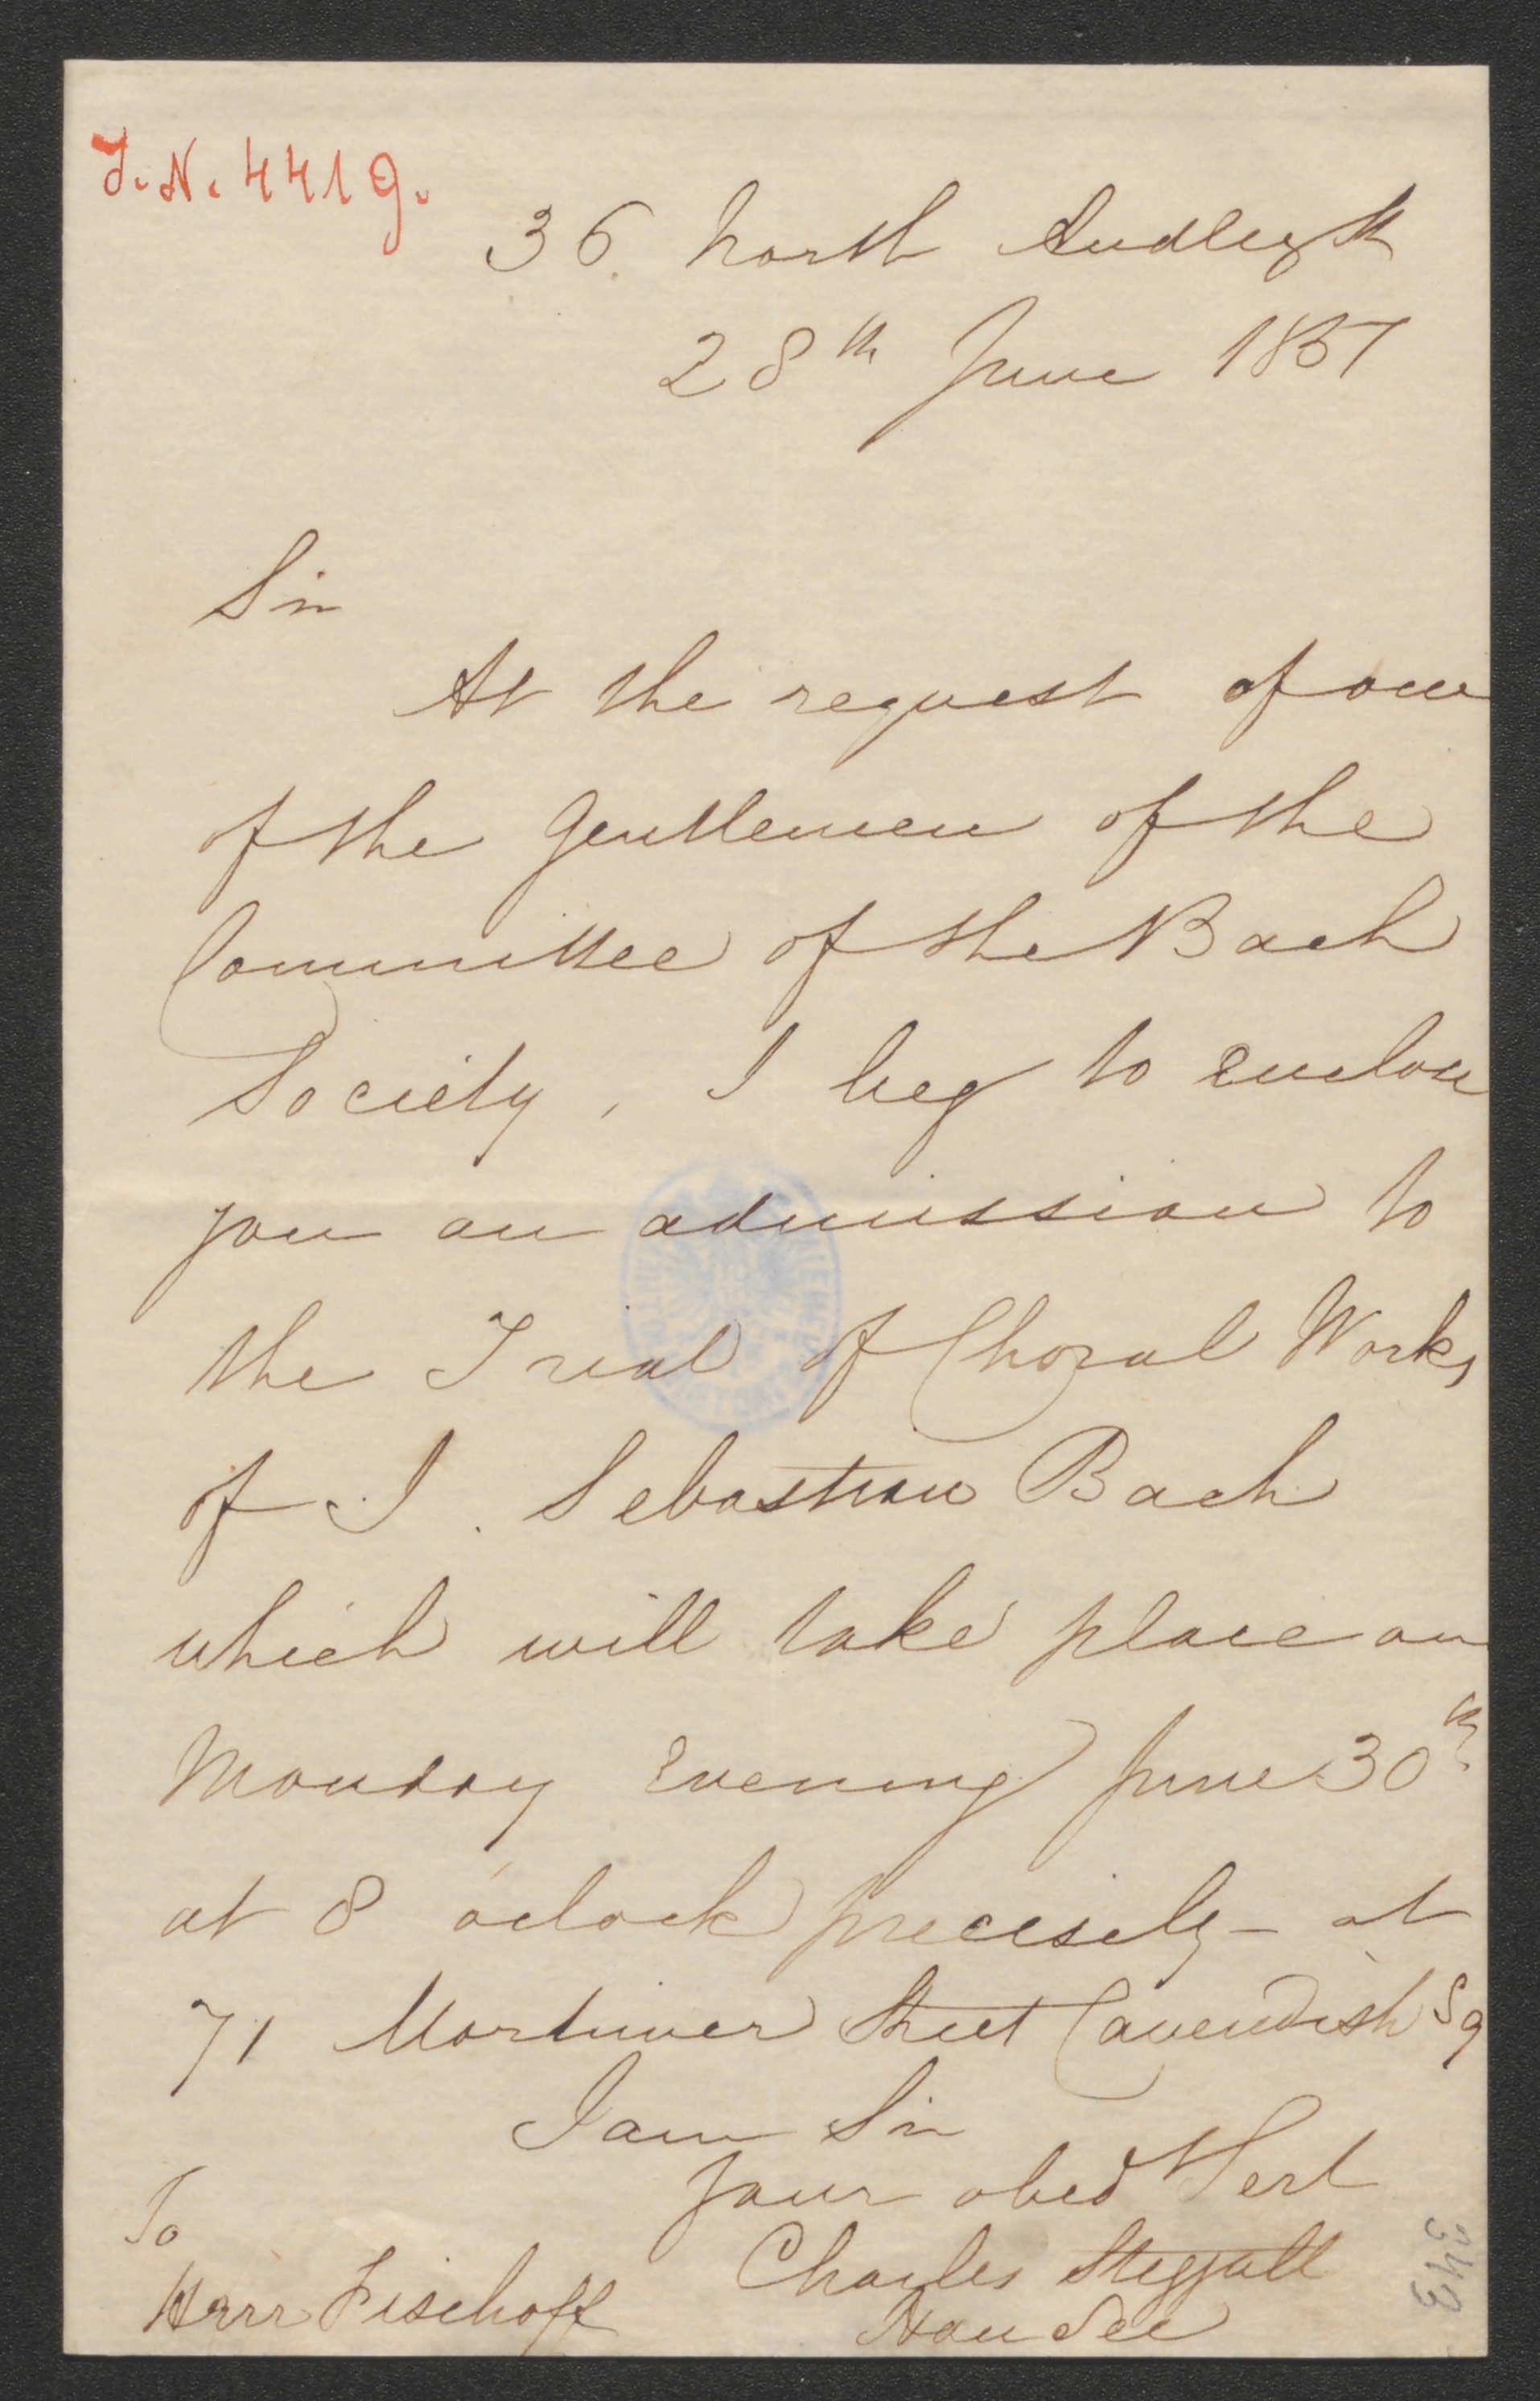 J. N. 4419.
36. North Audley St
28th June 1851
Sir
At the request of one
of the Gentlemen of the
Committee of the Bach
Society, I beg to enclose
you an admission to
the Trial of Choral Works
of J. Sebastian Bach
which will take place on
Monday Evening June 30th
at 8 o'clock precisely - at
71 Mortimer Street Cavendish Sq
I am Sir
your obed Sert
Charles Steggall
Hon Sec
To
Herr Fischoff